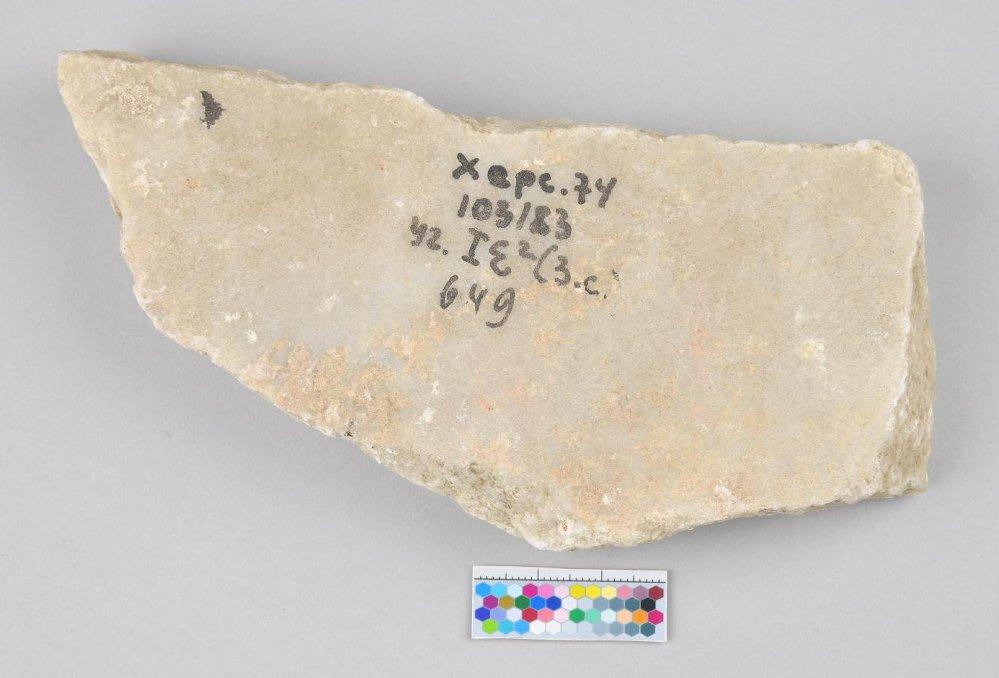 Херс. 74
103/83
уг. IƐ²(3.с.)
649